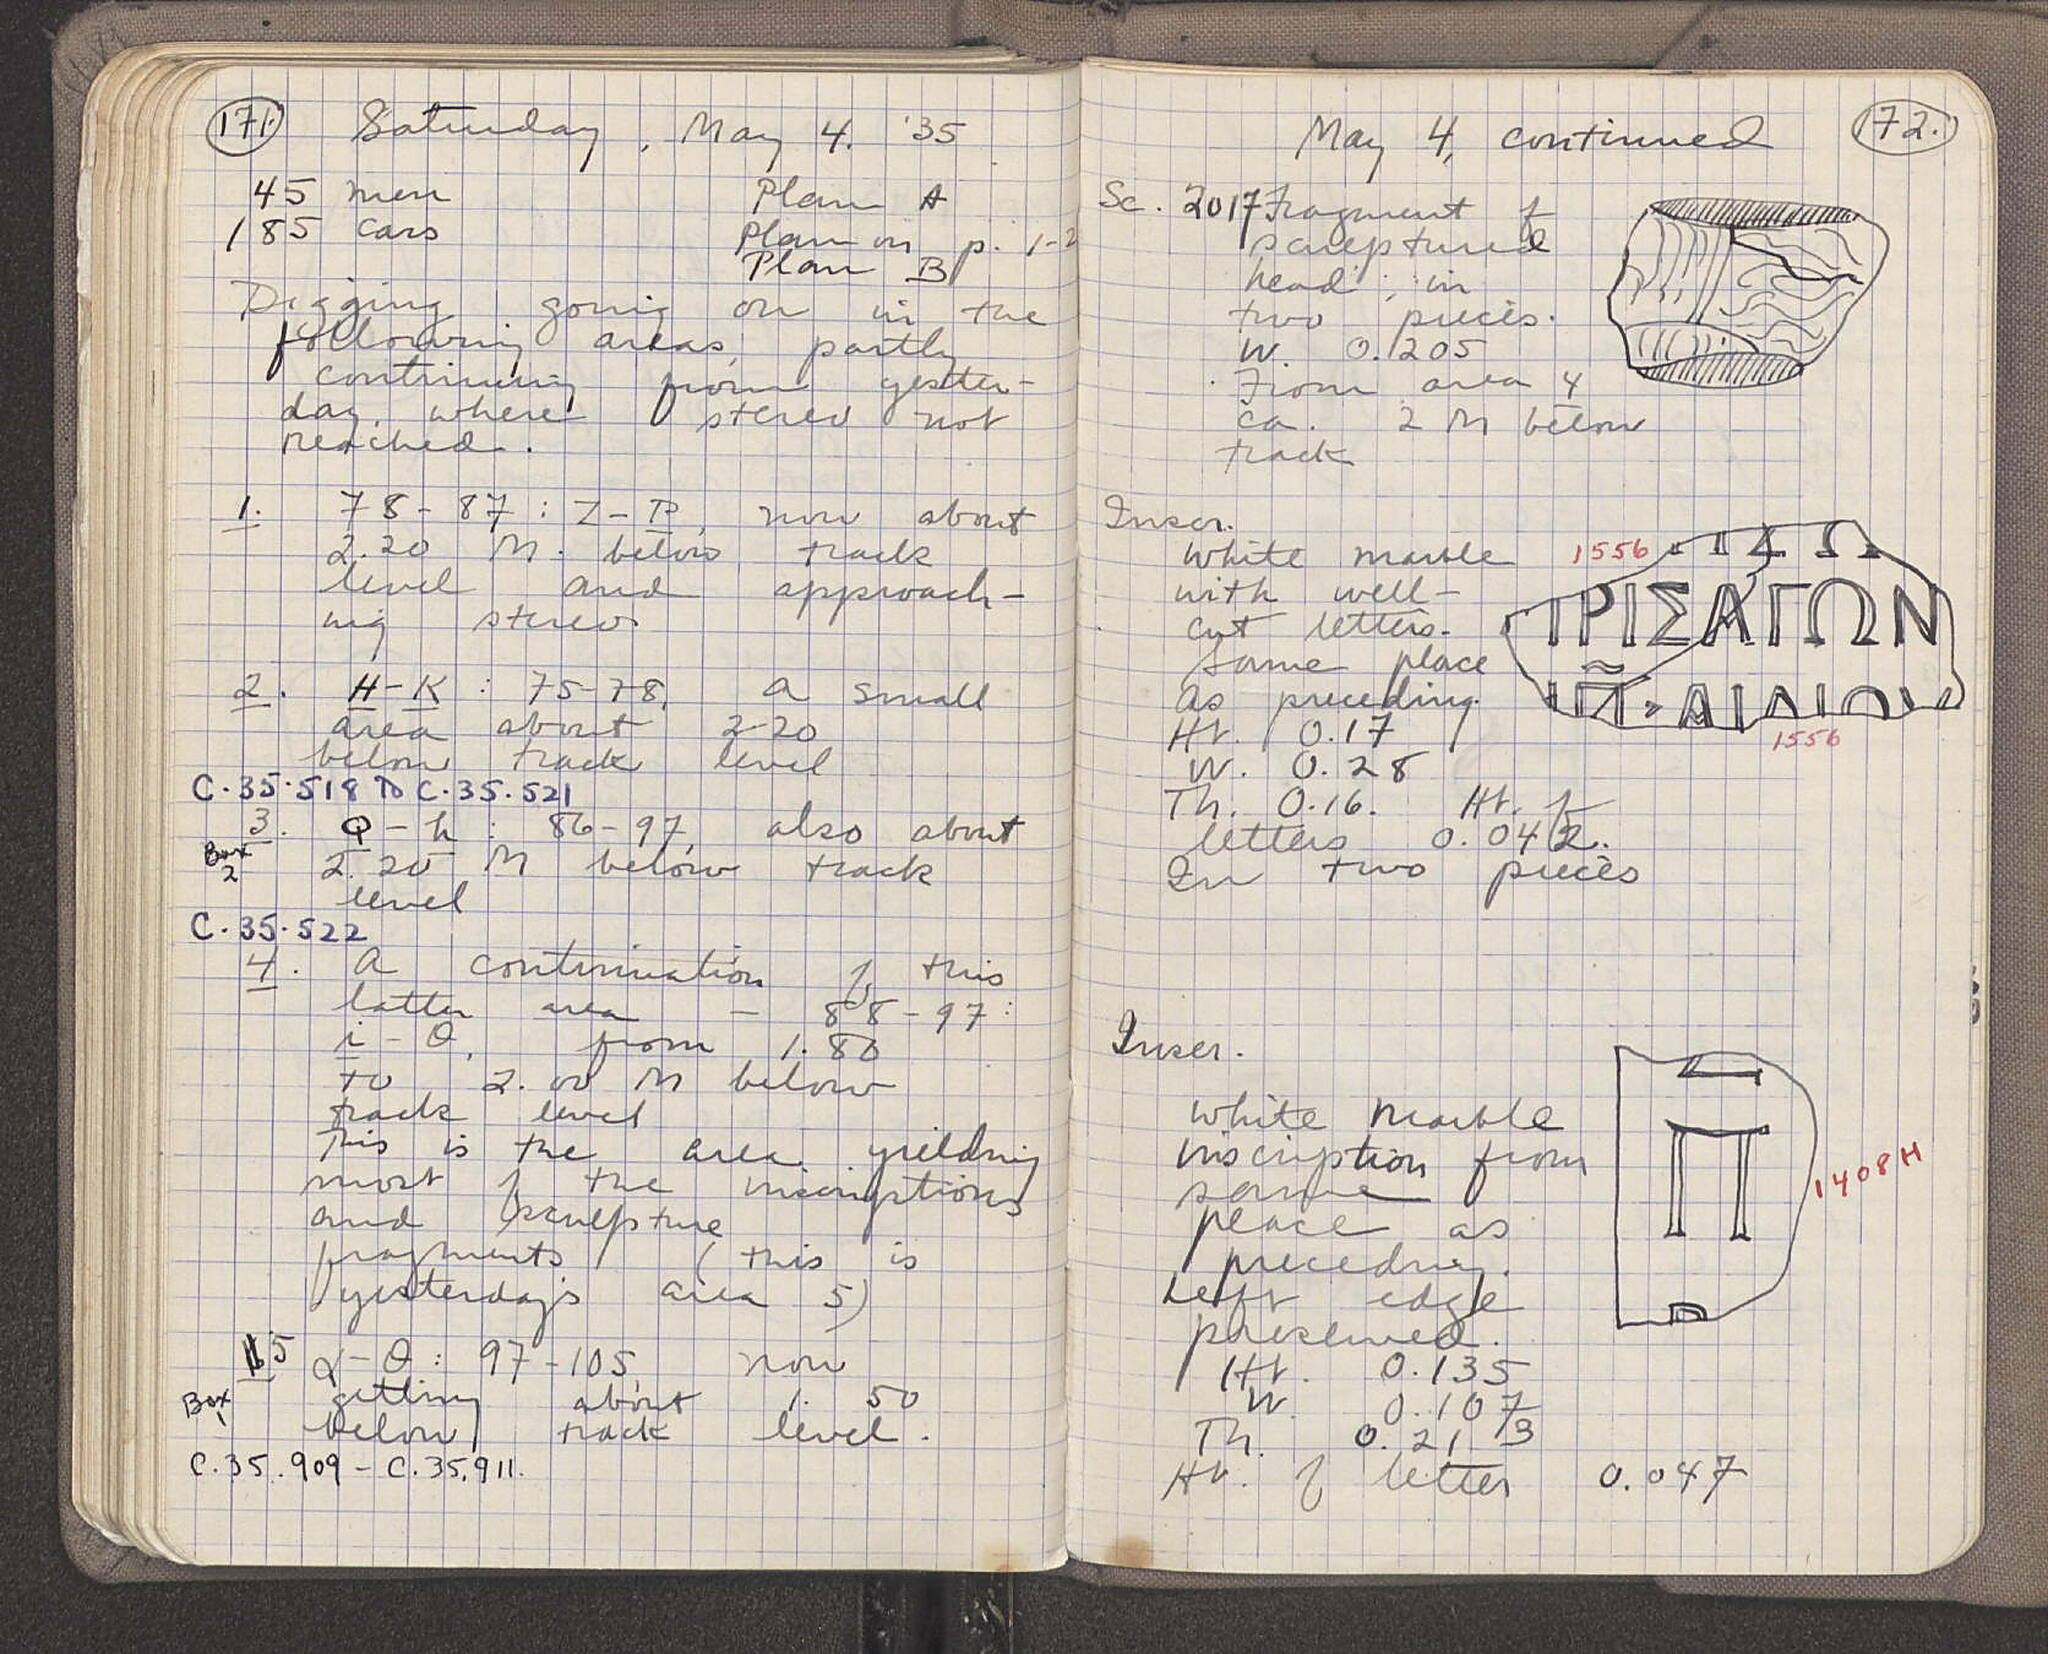 171.
Saturday, May 4. '35
45 men Plan A
185 cars Plan on p. 1-2
Plan B
Digging going on in the
following areas, partly
continuing from yester-
day, where stereo not
reached.
1. 78-87 : Z-P, now about
2.20 M. below track
level and approach-
ing stereo
2. H-K : 75-78, a small
area about 2-20
below track level
C.35.518 TO C.35.521
3. Q-h : 86-97, also about
Box 2
2.20 M below track
level
C.35.522
4. A continuation of this
latter area - 88-97:
i-θ, from 1.80
to 2.00 M below
track level
This is the area yielding
most of the inscriptions
and sculpture
fragments (this is
yesterday's area 5)
5 α-θ: 97-105, now
Box 1
getting about 1.50
below track level.
C.35.909 - C.35.911.
172.
May 4, continued
Sc. 2017 Fragment of
sculptured
head; in
two pieces.
W. 0.205
From area 4
ca. 2 M below
track
Inscr.
White marble
with well-
cut letters.
Same place
as preceding.
Ht. 0.17
W. 0.28
Th. 0.16. Ht. of
letters 0.042.
In two pieces
1556
ΤΡΙΣΑΓΩΝ
1556
Inscr.
White marble
inscription from
same
place as
preceding.
Left edge
preserved.
Ht. 0.135
W. 0.107
Th. 0.213
Ht. of letter 0.047
Π
1408H